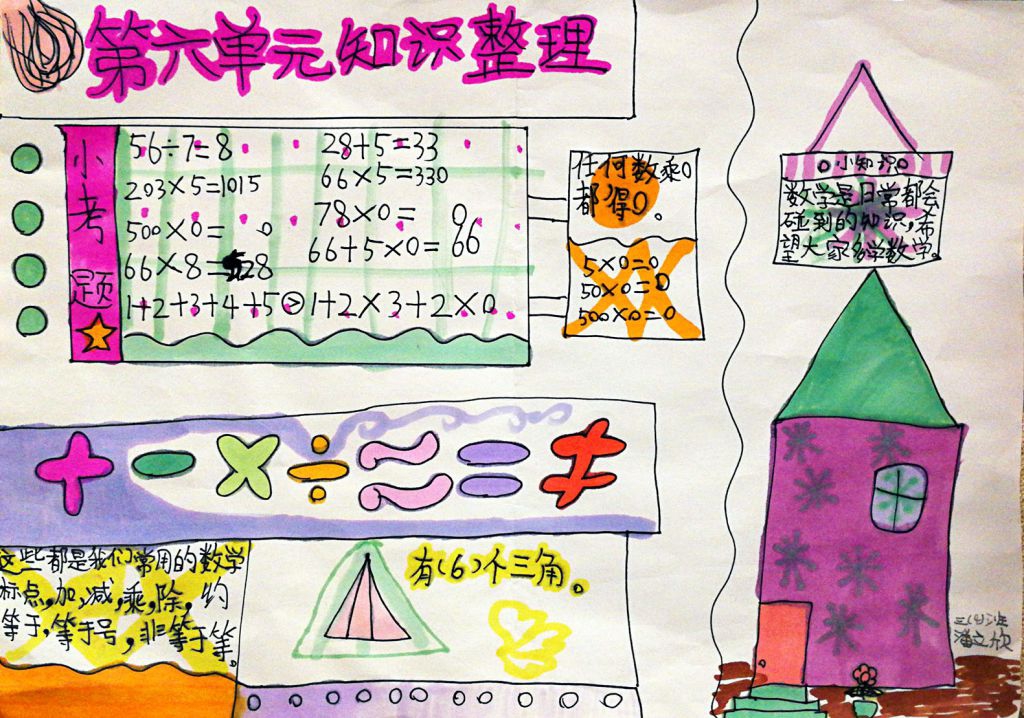 第六单元知识整理
小考题
56÷7=8
28+5=33
203×5=1015
66×5=330
500×0= 0
78×0= 0
66×8=528
66+5×0=66
1+2+3+4+5>1+2×3+2×0
任何数乘0
都得0。
5×0=0
50×0=0
500×0=0
小知识
数学是日常都会
碰到的知识,希
望大家多学数学。
+ - × ÷ ≈ = ≠
这些都是我们常用的数学
标点,加,减,乘,除,约
等于,等于号,非等于等。
有(6)个三角。
三(4)班